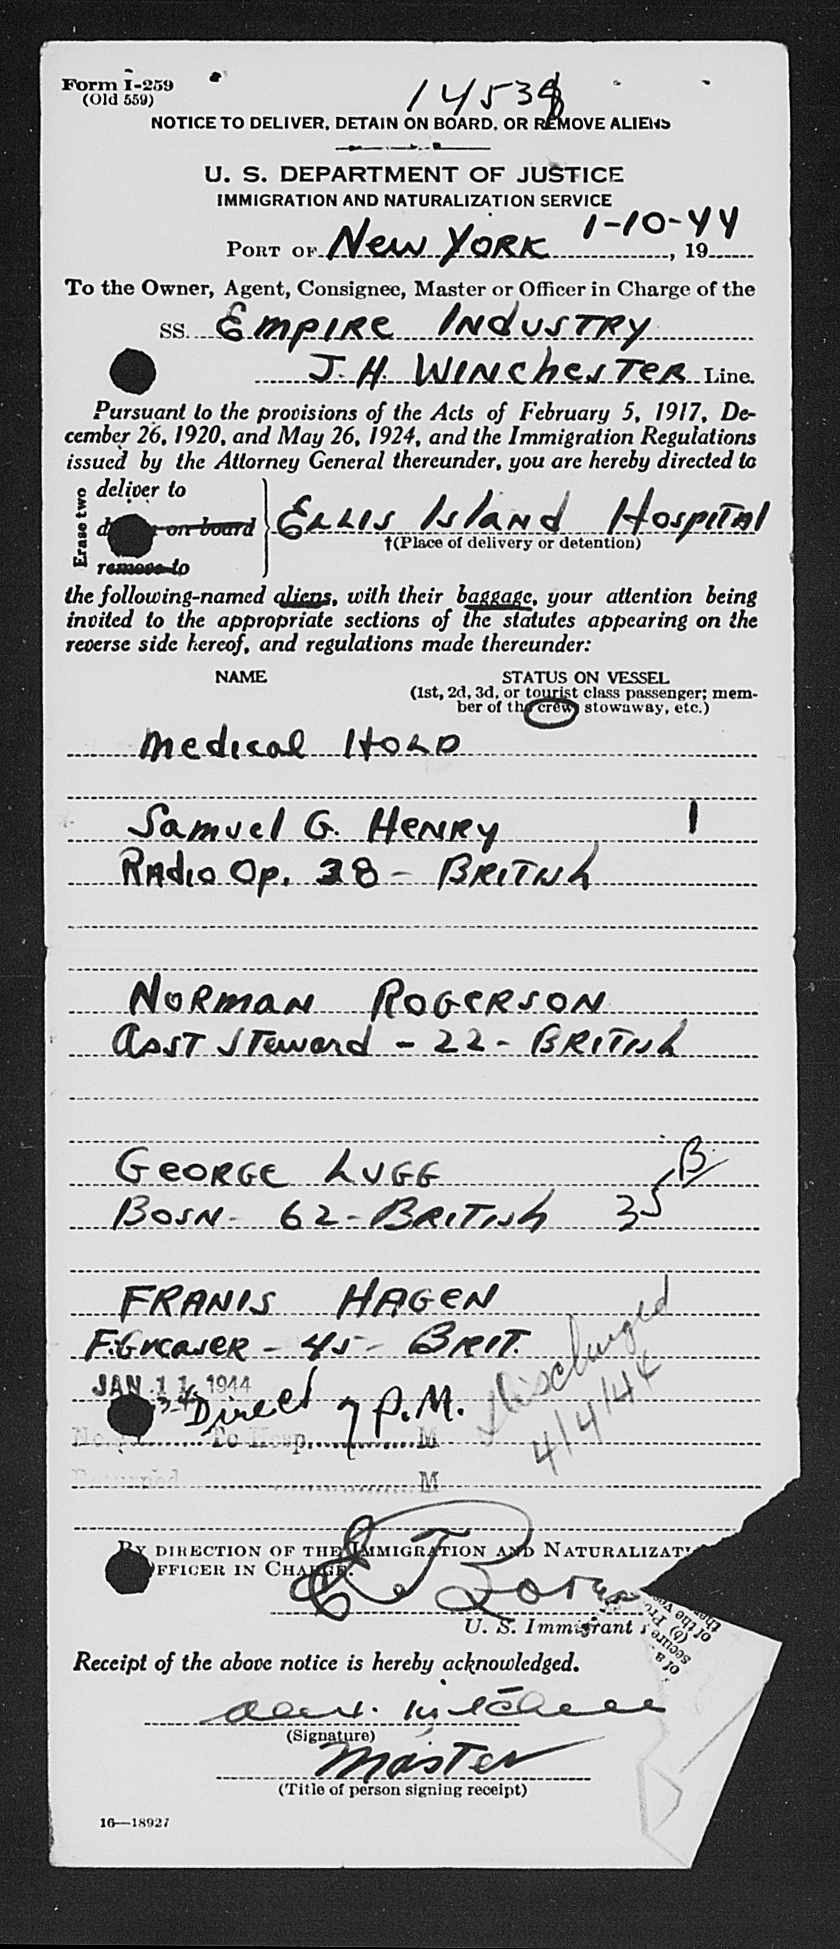 Form I-259
(Old 559)
14538
NOTICE TO DELIVER, DETAIN ON BOARD, OR REMOVE ALIENS
U. S. DEPARTMENT OF JUSTICE
IMMIGRATION AND NATURALIZATION SERVICE
PORT OF New York 1-10-44, 19
To the Owner, Agent, Consignee, Master or Officer in Charge of the
SS. Empire Industry
J. H. Winchester Line.
Pursuant to the provisions of the Acts of February 5, 1917, De-
cember 26, 1920, and May 26, 1924, and the Immigration Regulations
issued by the Attorney General thereunder, you are hereby directed to
Erase two
deliver to
on board
remove to
Ellis Island Hospital
†(Place of delivery or detention)
the following-named aliens, with their baggage, your attention being
invited to the appropriate sections of the statutes appearing on the
reverse side hereof, and regulations made thereunder:
NAME STATUS ON VESSEL
(1st, 2d, 3d, or tourist class passenger; mem-
ber of the crew, stowaway, etc.)
Medical Hold
Samuel G. Henry 1
Radio Op. 38 - British
Norman Rogerson
Asst Steward - 22 - British
George Lugg B
Bosn - 62 - British 35
Franis Hagen
F. Greaser - 45 - Brit.
Discharged
4/4/44
JAN 11 1944
Direct 7 P.M.
To Hosp. M
Returned M
BY DIRECTION OF THE IMMIGRATION AND NATURALIZAT
OFFICER IN CHARGE.
U. S. Immigrant
Receipt of the above notice is hereby acknowledged.
(Signature)
Master
(Title of person signing receipt)
16—18927